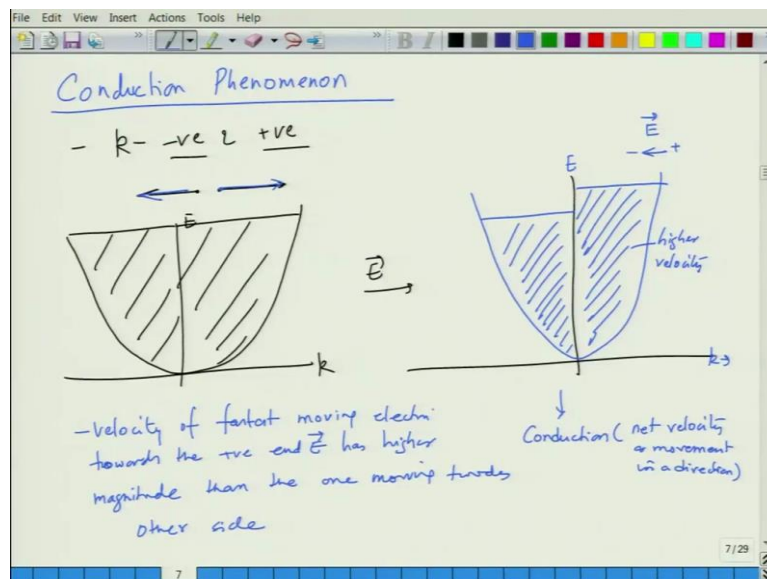 File Edit View Insert Actions Tools Help
B I
Conduction Phenomenon
- k- -ve & +ve
E
k
E
E
- ← +
E
higher
velocity
k→
-velocity of fastest moving electron
towards the +ve end E has higher
magnitude than the one moving towards
other side
Conduction ( net velocity
or movement
in a direction)
7/29
7